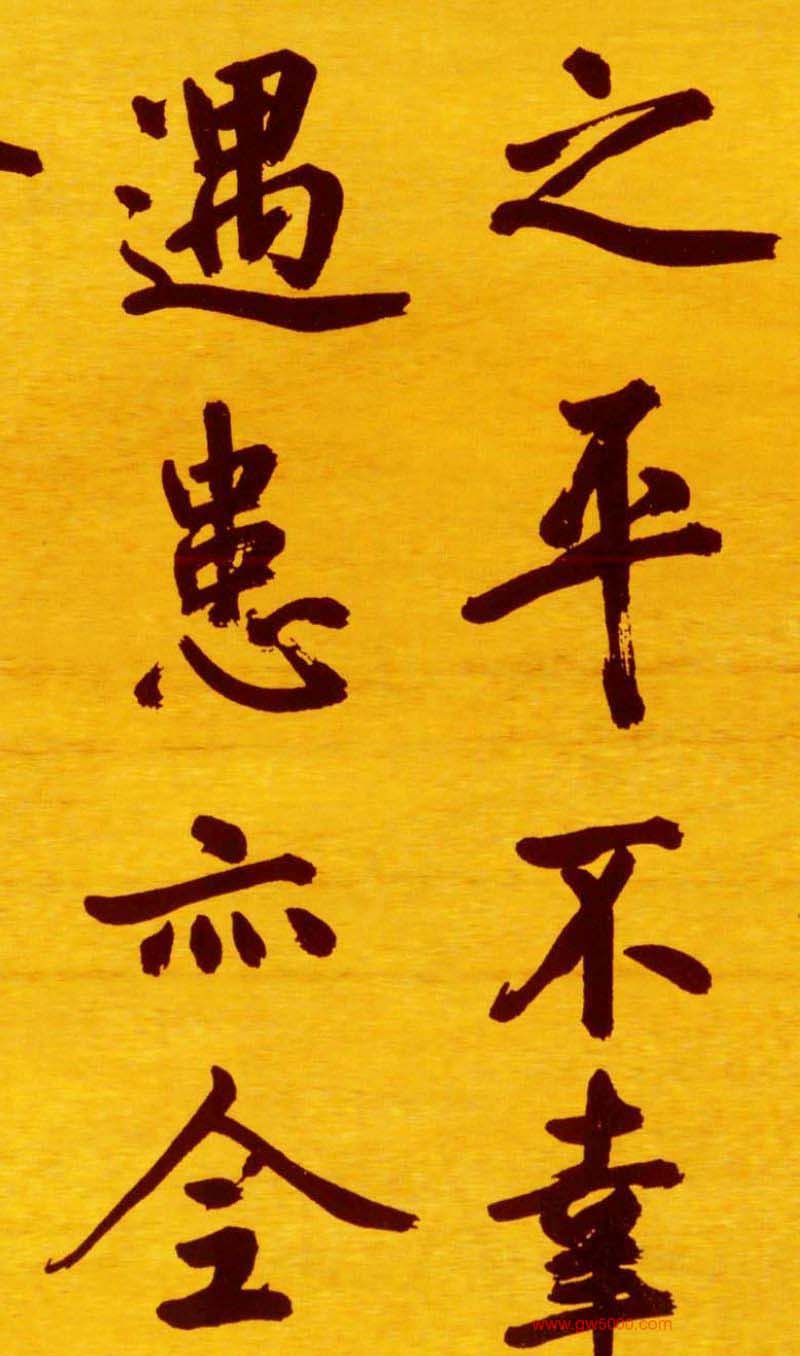 之平不幸
遇患亦全
www.gw5000.com